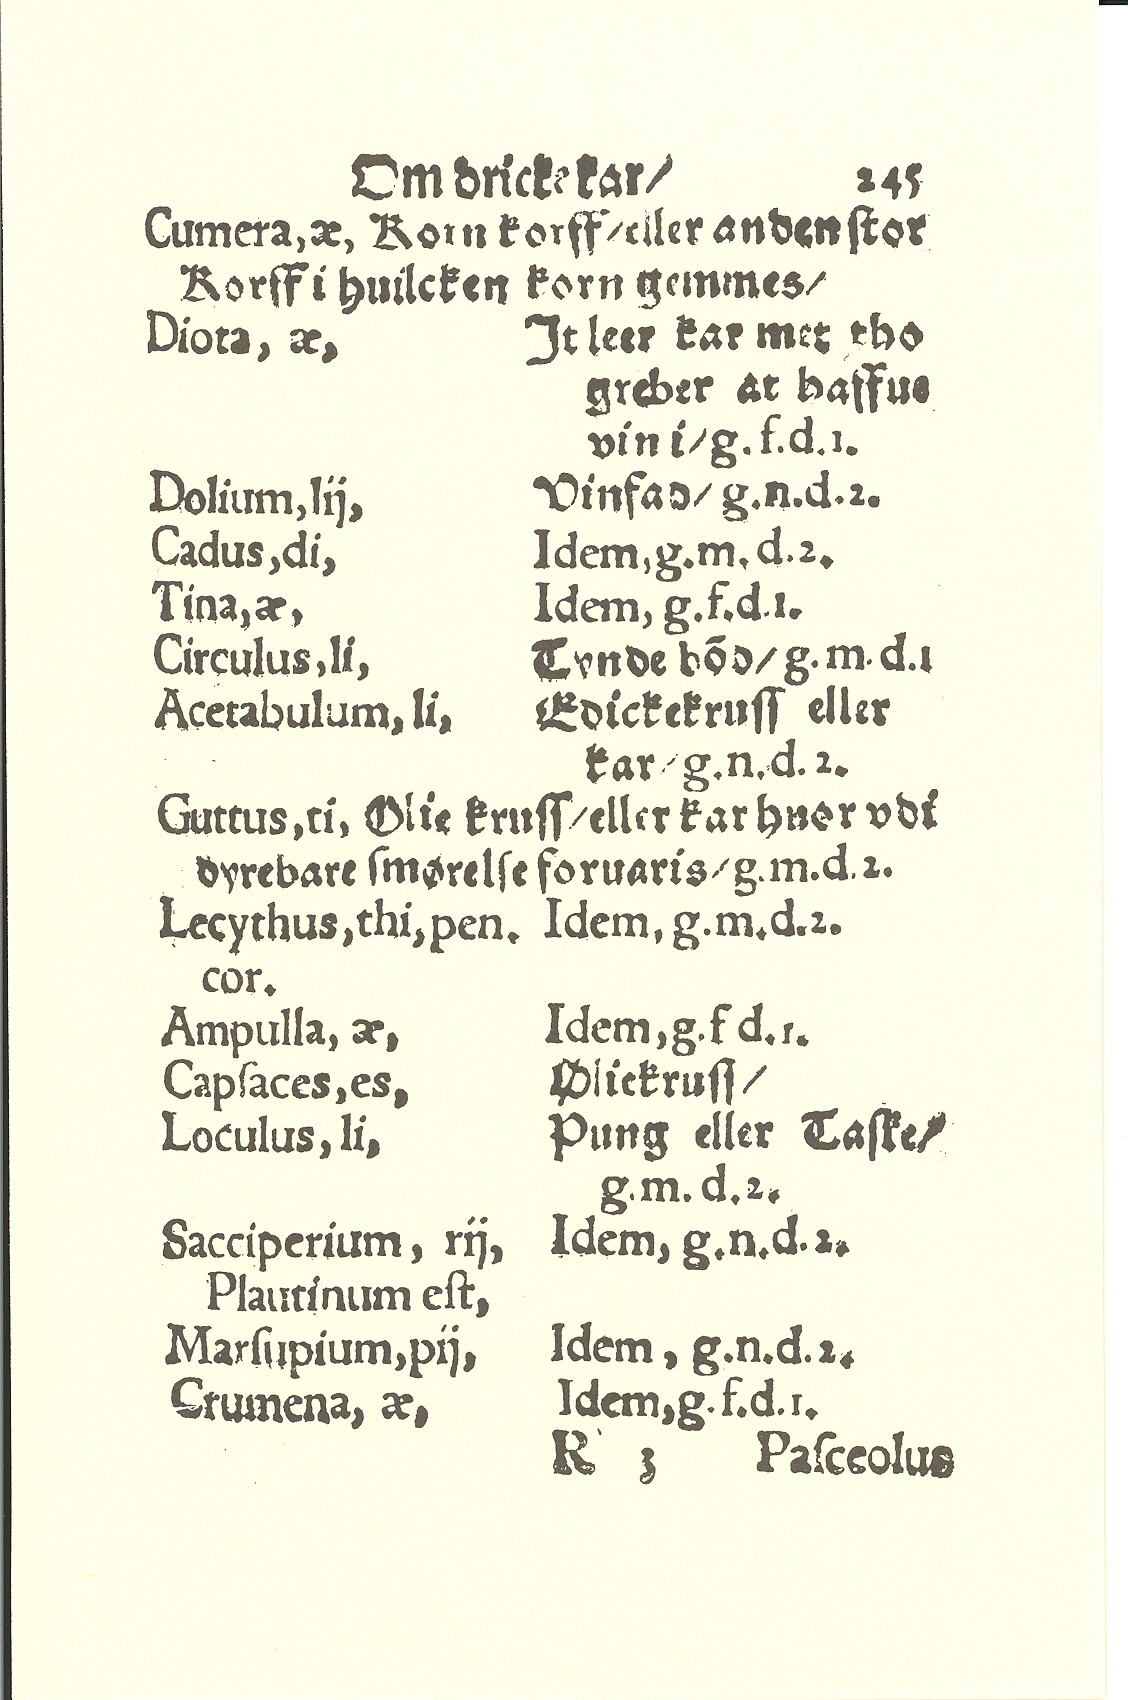 Om dricke kar/ 245
Cumera, æ, Korn korff/eller anden stor
Korff i huilcken korn gemmes/
Diota, æ, It leer kar met tho
greber at haffue
vin i/g.f.d.1.
Dolium, lij, Vinfad/ g.n.d.2.
Cadus, di, Idem, g.m.d.2.
Tina, æ, Idem, g.f.d.1.
Circulus, li, Tynde bõd/ g.m.d.1
Acetabulum, li, Edickekruſſ eller
kar/g.n.d.2.
Guttus, ti, Olie kruſſ/eller kar huor vdi
dyrebare ſmørelſe foruaris/g.m.d.2.
Lecythus, thi, pen. Idem, g.m.d.2.
cor.
Ampulla, æ, Idem, g.f d.1.
Capſaces, es, Øliekruſſ/
Loculus, li, Pung eller Taſke/
g.m.d.2.
Sacciperium, rij, Idem, g.n.d.2.
Plautinum eſt,
Marſupium, pij, Idem, g.n.d.2.
Crumena, æ, Idem, g.f.d.1.
R 3 Paſceolus